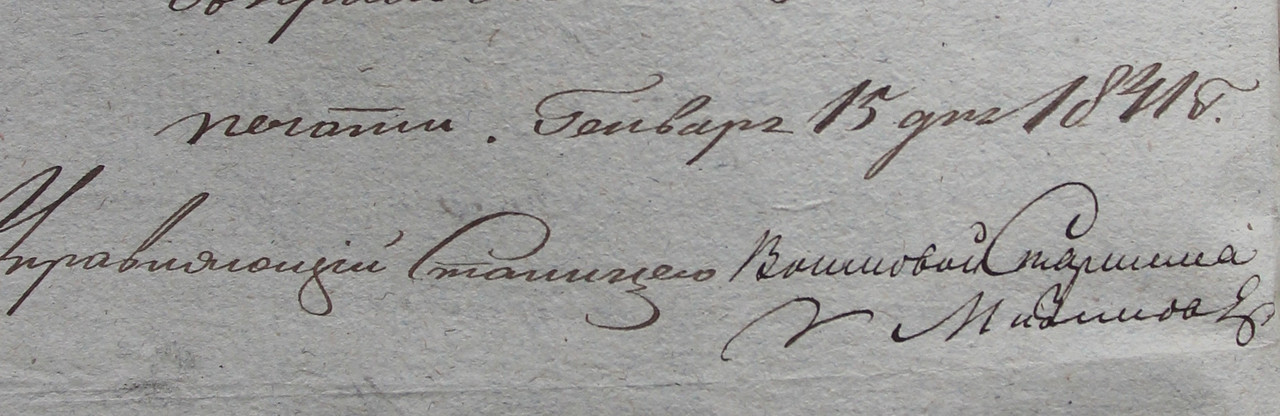 печати. Генваря 15 дня 1841 г.
Управляющий Станицею Войсковой Старшина